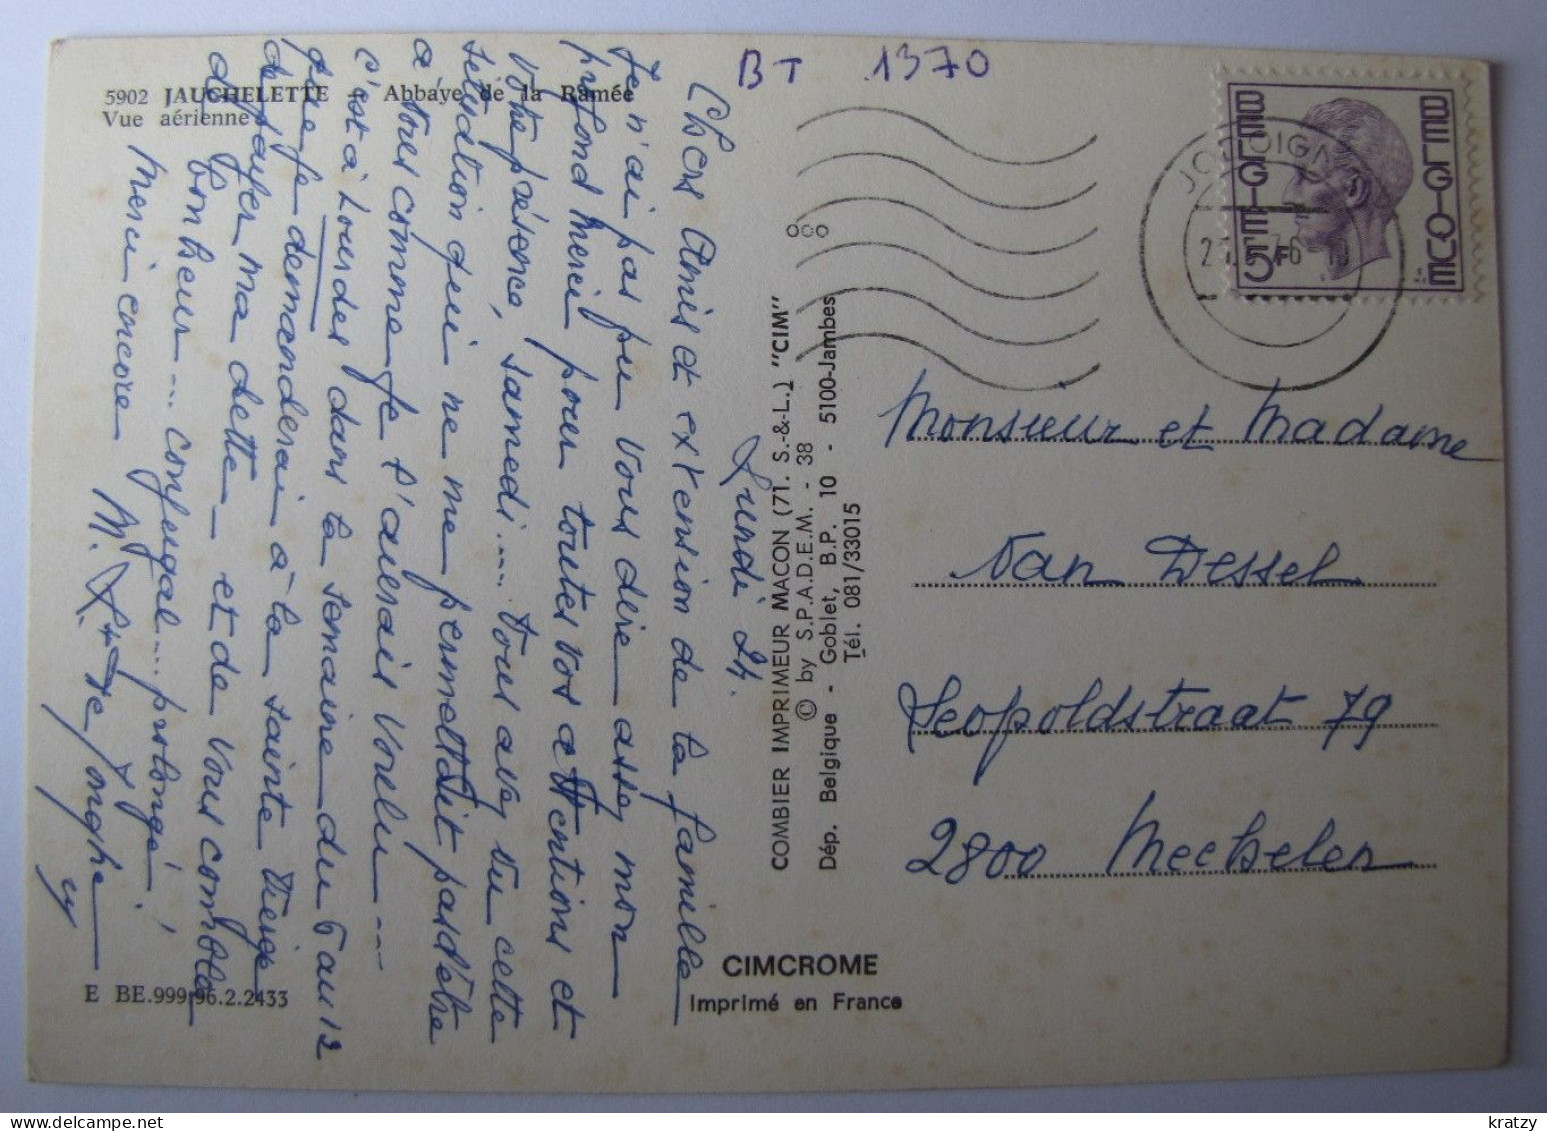 BT 1370
5902 JAUCHELETTE - Abbaye de la Ramée
Vue aérienne
Lundi 24.
Chers Amis et extension de la famille
Je n'ai pas pu vous dire assez mon
profond merci pour toutes vos attentions et
votre présence, samedi.... vous avez vu cette
situation qui ne me permettait pas d'être
à vous comme je l'aurais voulu...
c'est à Lourdes dans la semaine du 5 au 12
que je demanderai à la sainte Vierge
d'acquitter ma dette - et de vous combler
de bonheur... conjugal.... prolongé!
Merci encore
E BE.999.96.2.2433
COMBIER IMPRIMEUR MACON (71. S.-&-L.) "CIM"
© by S.P.A.D.E.M. - 38
Dép. Belgique - Goblet, B.P. 10 - 5100-Jambes
Tél. 081/33015
CIMCROME
Imprimé en France
BELGIE
BELGIQUE
5F
Monsieur et Madame
Van Dessel
Leopoldstraat 79
2800 Mechelen
kratzy